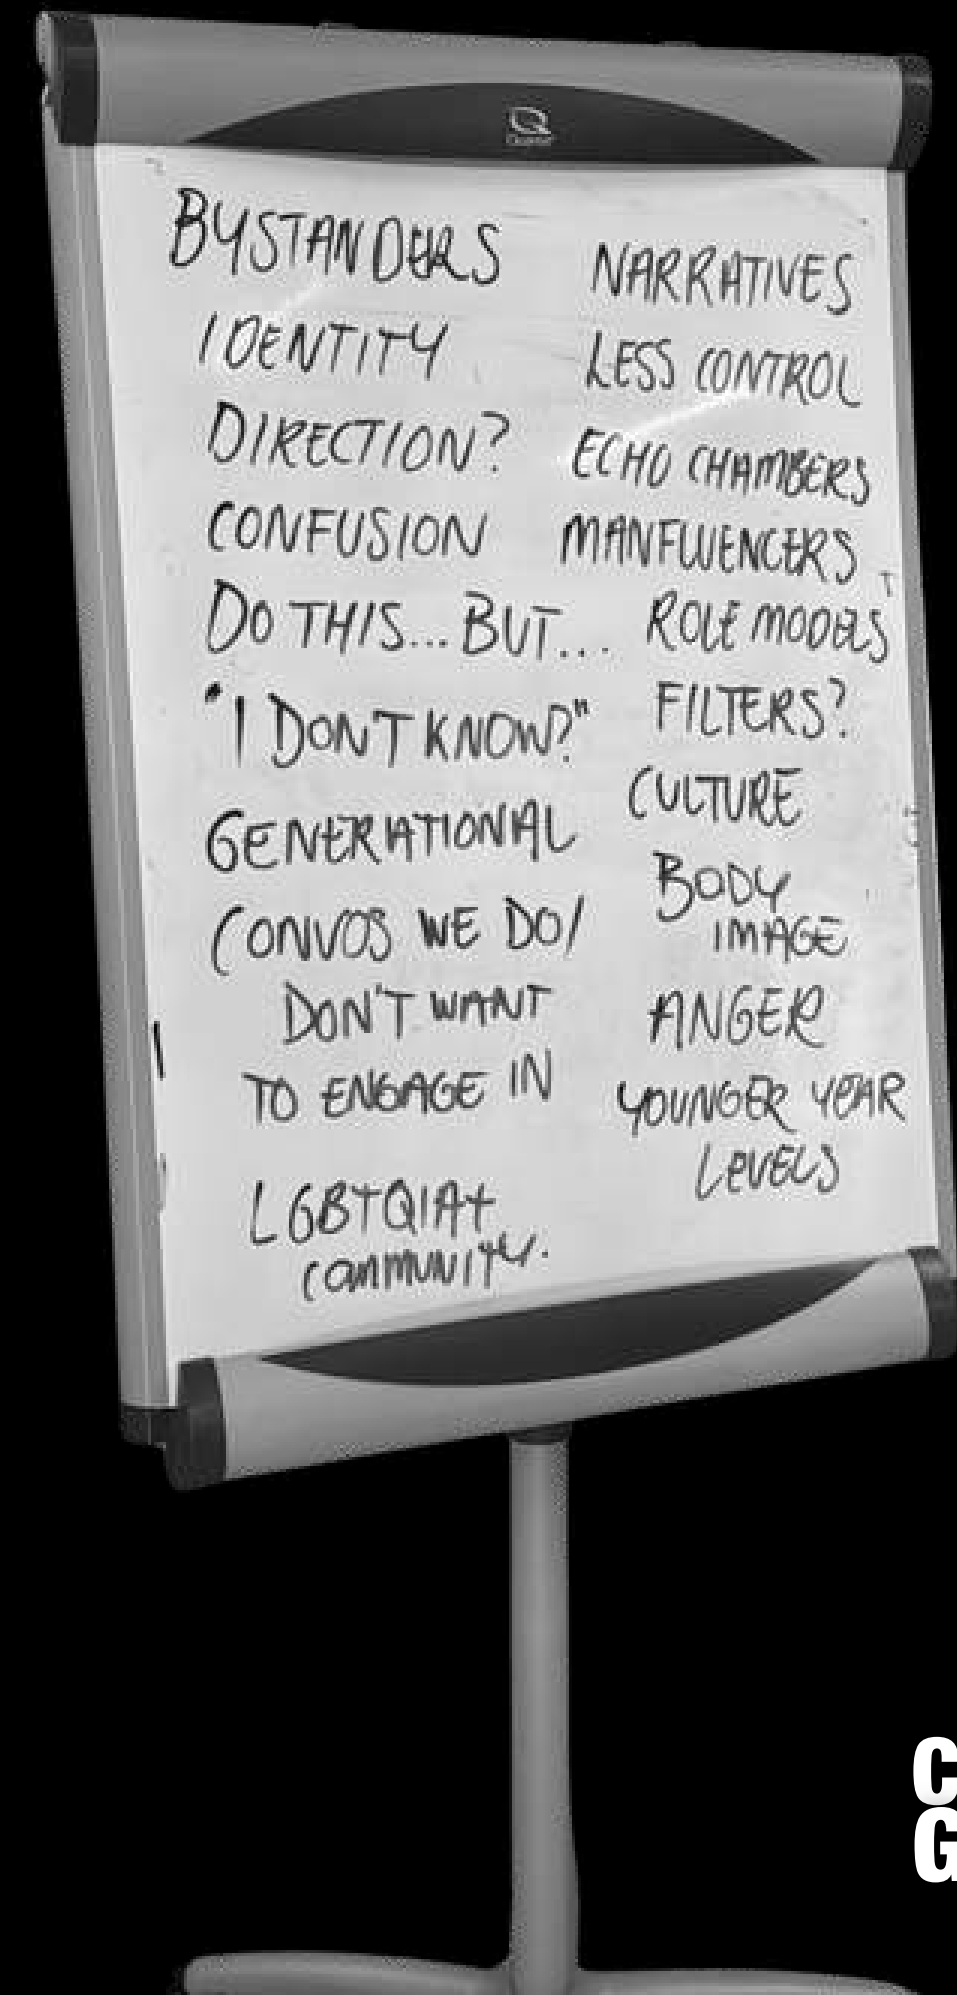 BYSTANDERS
IDENTITY
DIRECTION?
CONFUSION
DO THIS... BUT...
"I DON'T KNOW?"
GENERATIONAL
CONVOS WE DO/
DON'T WANT
TO ENGAGE IN
LGBTQIA+
COMMUNITY.
NARRATIVES
LESS CONTROL
ECHO CHAMBERS
MANFLUENCERS
ROLE MODELS
FILTERS?
CULTURE
BODY
IMAGE
ANGER
YOUNGER YEAR
LEVELS
C
G